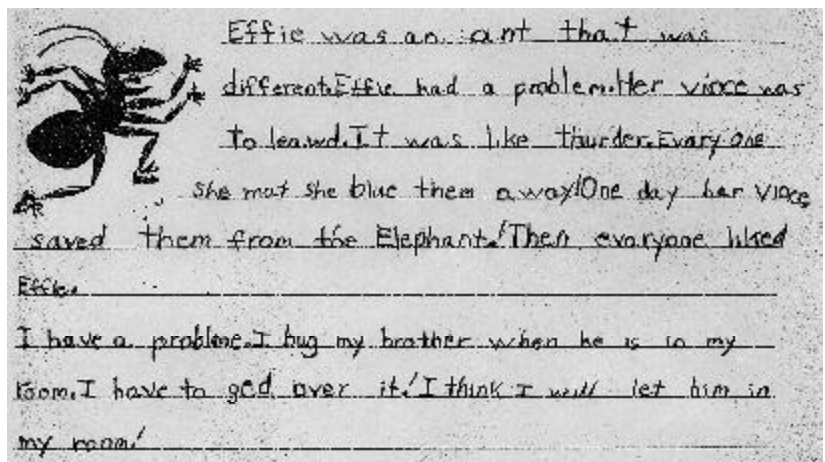 Effie was an ant that was
different.Effie had a problem.Her vioce was
to leawd.It was like thurder.Evary one
she mat she blue them away!One day her vioce
saved them from the Elephant.!Then evaryone liked
Effie.
I have a problme.I bug my brother when he is in my
room.I have to ged over it.!I think I will let him in
my room!